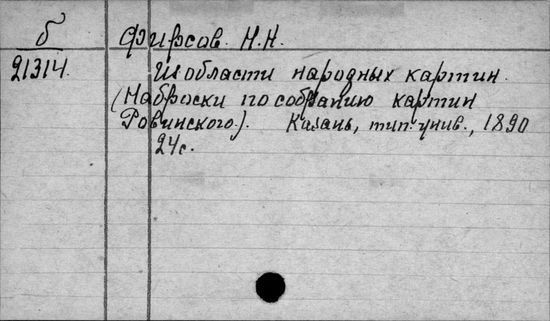 б
Фирсов. Н.Н.
21314.
Из области народных картин.
(Наброски по собранию картин
Ровинского.). Казань, тип. унив., 1890
24 с.